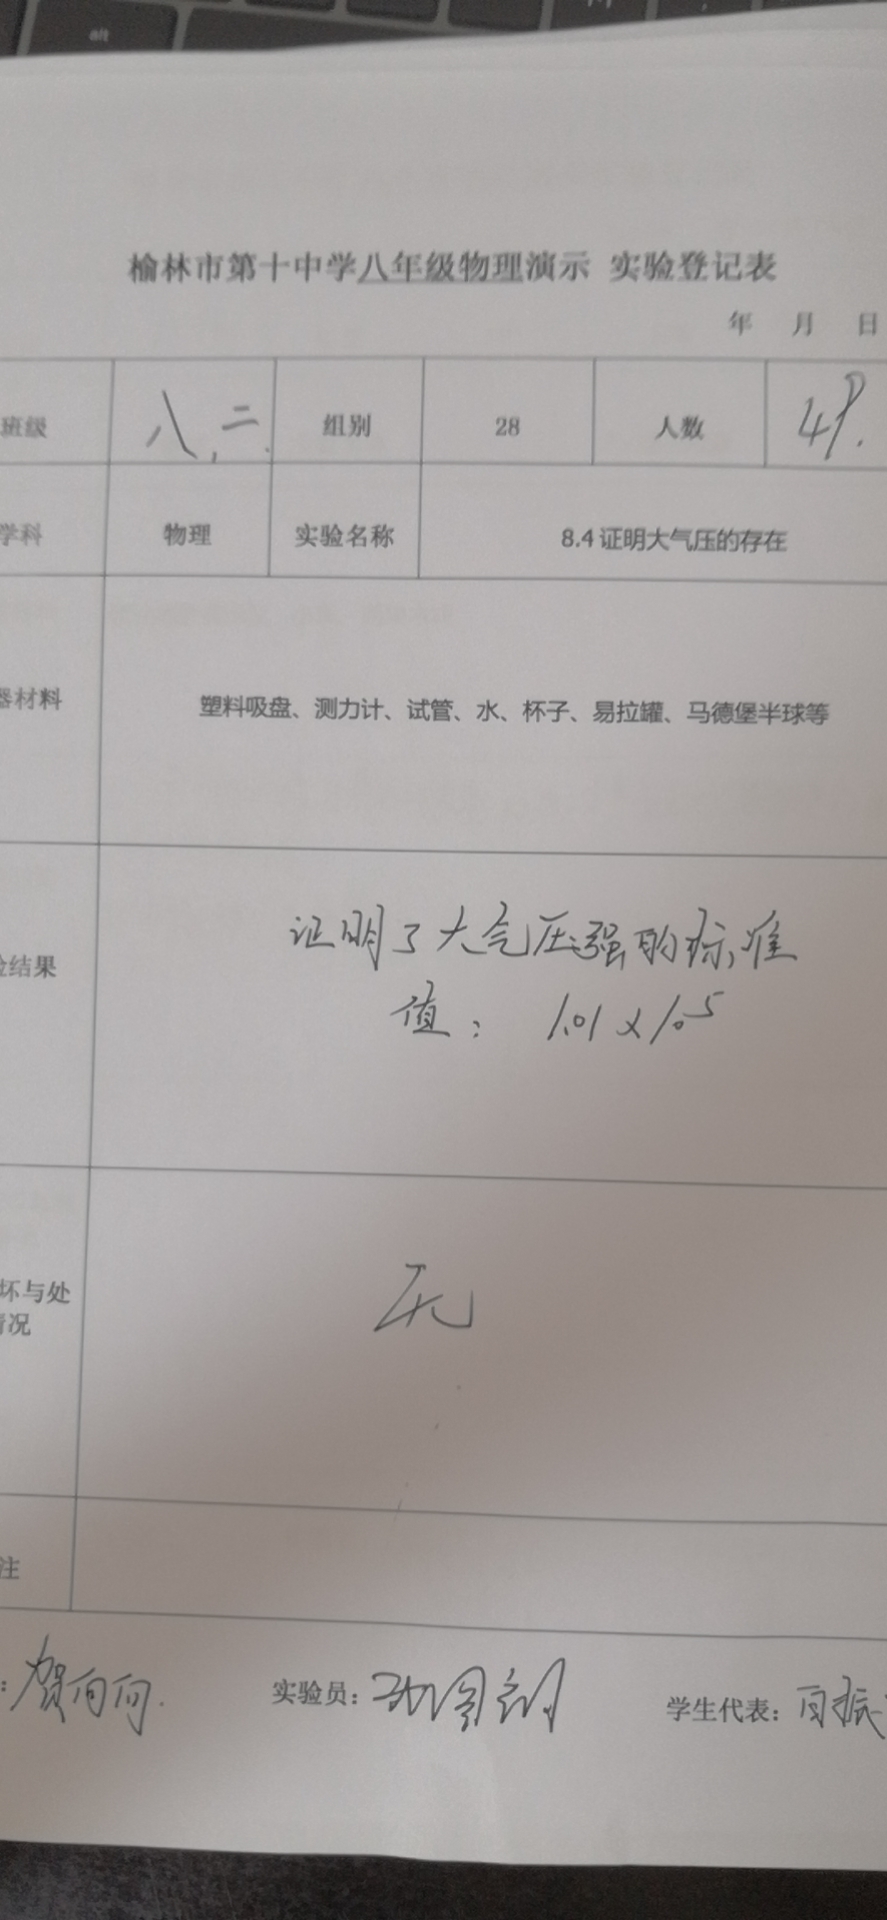 alt
榆林市第十中学八年级物理演示 实验登记表
年 月 日
班级 八.二. 组别 28 人数 49.
学科 物理 实验名称 8.4证明大气压的存在
器材料 塑料吸盘、测力计、试管、水、杯子、易拉罐、马德堡半球等
证明了大气压强的标准
结果
值: 1.01×10⁵
坏与处
情况
无
注
: 贺向向. 实验员: 学生代表: 白振